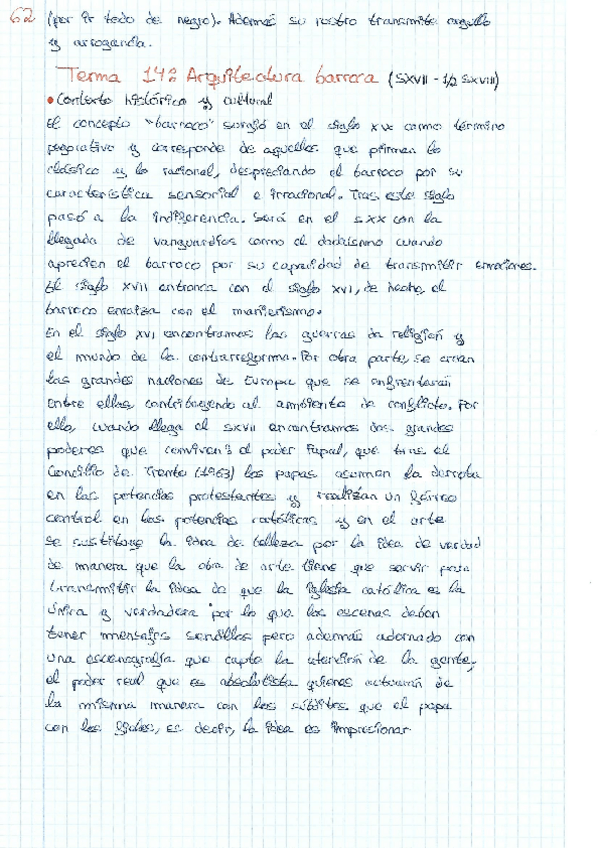 62 (por ir todo de negro). Además su rostro transmite orgullo
y arrogancia.
Tema 142 Arquitectura barroca (SXVII - 1/2 SXVIII)
• Contexto histórico y cultural
El concepto "barroco" surgió en el siglo XIX como término
peyorativo y corresponde de aquellos que priman lo
clásico y lo racional, despreciando el barroco por su
característica sensorial e irracional. Tras este siglo
pasó a la indiferencia. Será en el SXX con la
llegada de vanguardias como el dadaísmo cuando
aprecien el barroco por su capacidad de transmitir emociones.
El siglo XVII entronca con el siglo XVI, de hecho, el
barroco enraiza con el manierismo.
En el siglo XVI encontramos las guerras de religión y
el mundo de la contrarreforma. Por otra parte, se crean
las grandes naciones de Europa que se enfrentarán
entre ellas contribuyendo al ambiente de conflicto. Por
ello, cuando llega el SXVII encontramos dos grandes
poderes que conviven: el poder Papal, que tras el
Concilio de Trento (1963) los papas asumen la derrota
en las potencias protestantes y realizan un férreo
control en las potencias católicas y en el arte
se sustituye la idea de belleza por la idea de verdad
de manera que la obra de arte tiene que servir para
transmitir la idea de que la Iglesia católica es la
única y verdadera por lo que las escenas deben
tener mensajes sencillos pero además adornado con
una escenografía que capte la atención de la gente,
el poder real que es absolutista quienes actuarán de
la misma manera con los súbditos que el papa
con los fieles, es decir, la idea es impresionar